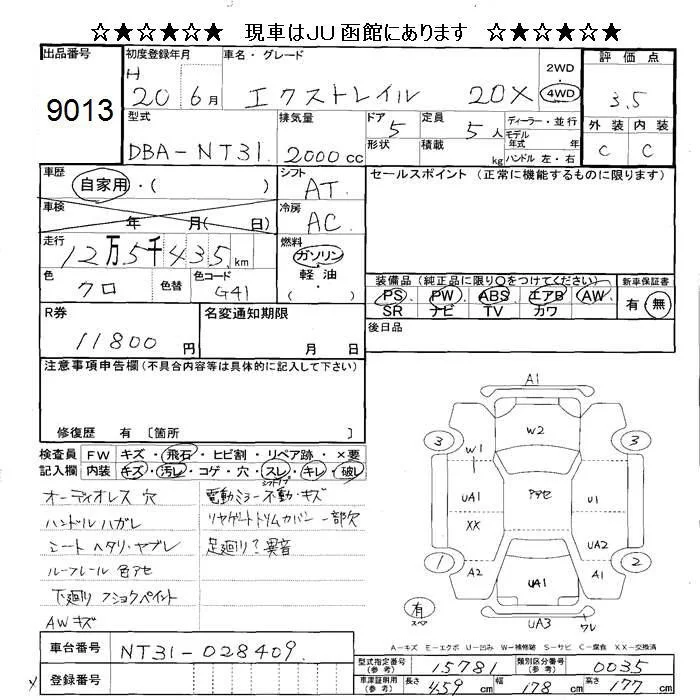 ☆★☆★☆ 現車はJU函館にあります ☆★☆★☆
出品番号 9013
初度登録年月 H 20 6月
車名・グレード エクストレイル 20X
2WD 4WD
評価点 3.5
外装 内装
C C
型式 DBA-NT31
排気量 2000cc
ドア 5 形状
定員 5人 積載 kg
ディーラー・並行
モデル年式 年式
ハンドル 左・右
車歴 自家用・( )
シフト AT
セールスポイント (正常に機能するものに限ります)
車検 年 月( 日)
冷房 AC
走行 12万5千435km
燃料 ガソリン・軽油・( )
色 クロ 色替 色コード G41
装備品(純正品に限り○をつけてください)
PS PW ABS エアB AW
SR ナビ TV カワ
新車保証書 有 無
R券 11800円
名変通知期限 月 日
後日品
注意事項申告欄(不具合内容等は具体的に記入して下さい)
修復歴 有 〔箇所 〕
検査員記入欄
FW キズ・飛石・ヒビ割・リペア跡・×要
内装 キズ・汚レ・コゲ・穴・スレ・キレ・破レ
オーディオレス 穴
ハンドル ハガレ
シート ヘタリ・ヤブレ
ルーフレール 色アセ
下廻り フショクペイント
AWキズ
電動ミラー不動・キズ
リヤゲートトリムカバー 一部欠
足廻り?異音
A1
3 W2 3
W1
UA1 アセ U1
XX UA2
1 A2 UA1 A1 2
有 スペア
UA3 ワレ
A-キズ E-エクボ U-凹み W-補修跡 S-サビ C-腐食 XX-交換済
車台番号 NT31-028409
登録番号
型式指定番号(参考) 15781 類別区分番号(参考) 0035
車庫証明用(参考) 長さ 459cm 幅 178cm 高さ 177cm